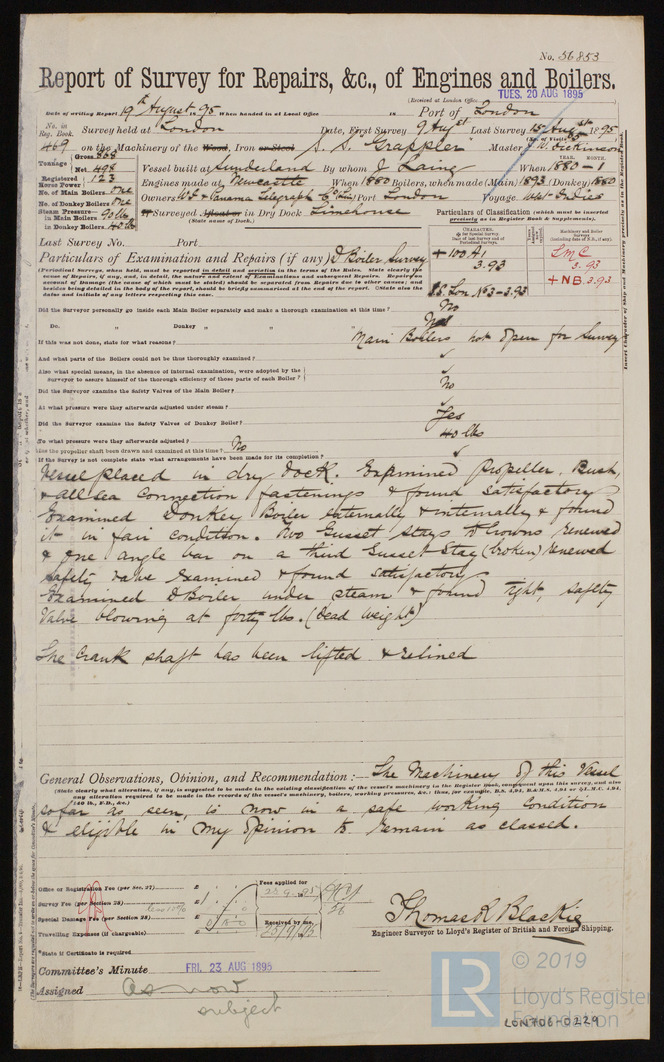 No. 56853
Report of Survey for Repairs, &c., of Engines and Boilers.
(Received at London Office
TUES. 20 AUG 1895
Date of writing Report 19th August 1895 When handed in at Local Office 18 Port of London
No. in Reg. Book. Survey held at London Date, First Survey 9 Augst Last Survey 15 Augst 1895
(No. of Visits
469 on the Machinery of the Wood, Iron or Steel S.S. "Grappler" Master W. Dickinson
Tonnage Gross 868 Net 498
Vessel built at Sunderland By whom J. Laing When 1880-1
YEAR. MONTH.
Registered Horse Power 123 Engines made at Newcastle When 1880 Boilers, when made (Main) 1893 (Donkey) 1880
No. of Main Boilers One
No. of Donkey Boilers One
Owners W.I. & Panama Telegraph Co. Port London Voyage West Indies
Steam Pressure in Main Boilers 90 lbs
in Donkey Boilers 40 lbs
If Surveyed Afloat or in Dry Dock Limehouse
(State name of Dock.)
Particulars of Classification (which must be inserted precisely as in Register Book & Supplements).
Last Survey No. Port
Particulars of Examination and Repairs (if any) D Boiler Survey
CHARACTER.
Machinery and Boiler Surveys
+ 100 A1
3.93
S.S. Lon No 3-3.93
LMC
3.93
+ NB. 3.93
(Periodical Surveys, when held, must be reported in detail and seriatim in the terms of the Rules. State clearly the cause of Repairs, if any, and, in detail, the nature and extent of Examinations and subsequent Repairs. Repairs on account of Damage (the cause of which must be stated) should be separated from Repairs due to other causes; and besides being detailed in the body of the report, should be briefly summarised at the end of the report. State also the dates and initials of any letters respecting this case.
Did the Surveyor personally go inside each Main Boiler separately and make a thorough examination at this time? No
Do. " Donkey " " " Yes
If this was not done, state for what reasons? Main Boilers not open for Survey
And what parts of the Boilers could not be thus thoroughly examined?
Also what special means, in the absence of internal examination, were adopted by the Surveyor to assure himself of the thorough efficiency of those parts of each Boiler?
Did the Surveyor examine the Safety Valves of the Main Boiler? No
At what pressure were they afterwards adjusted under steam?
Did the Surveyor examine the Safety Valves of Donkey Boiler? Yes
To what pressure were they afterwards adjusted? 40 lbs
Has the propeller shaft been drawn and examined at this time? No
If the Survey is not complete state what arrangements have been made for its completion?
Vessel placed in dry dock. Examined Propeller, Bush,
& all sea connection fastenings & found satisfactory
Examined Donkey Boiler externally & internally & found
it in fair condition. Two Gusset Stays to Crowns renewed
& one angle bar on a third Gusset Stay (broken) renewed
safety valve examined & found satisfactory
Examined D Boiler under steam & found tight, safety
Valve blowing at forty lbs. (Dead weight)
The Crank shaft has been lifted & relined
General Observations, Opinion, and Recommendation :— The Machinery of this Vessel
(State clearly what alteration, if any, is suggested to be made in the existing classification of the vessel's machinery in the Register Book, consequent upon this survey, and also any alteration required to be made in the records of the vessel's machinery, boilers, working pressure, &c.; thus, for example, B.S. 4,94, B.&M.S. 4,94 or L.M.C. 4,94, 140 lb., F.D., &c.)
so far as seen, is now in a safe working condition
& eligible in my opinion to remain as classed.
Office or Registration Fee (per Sec. 27) £
Survey Fee (per Section 28) £
Special Damage Fee (per Section 28) £
Travelling Expenses (if chargeable) £
Fees applied for
Received by me,
Thomas R Blackie
Engineer Surveyor to Lloyd's Register of British and Foreign Shipping.
*State if Certificate is required
Committee's Minute FRI. 23 AUG 1895
Assigned As now
subject
© 2019
LR
Lloyd's Register
Foundation
LON706-0229